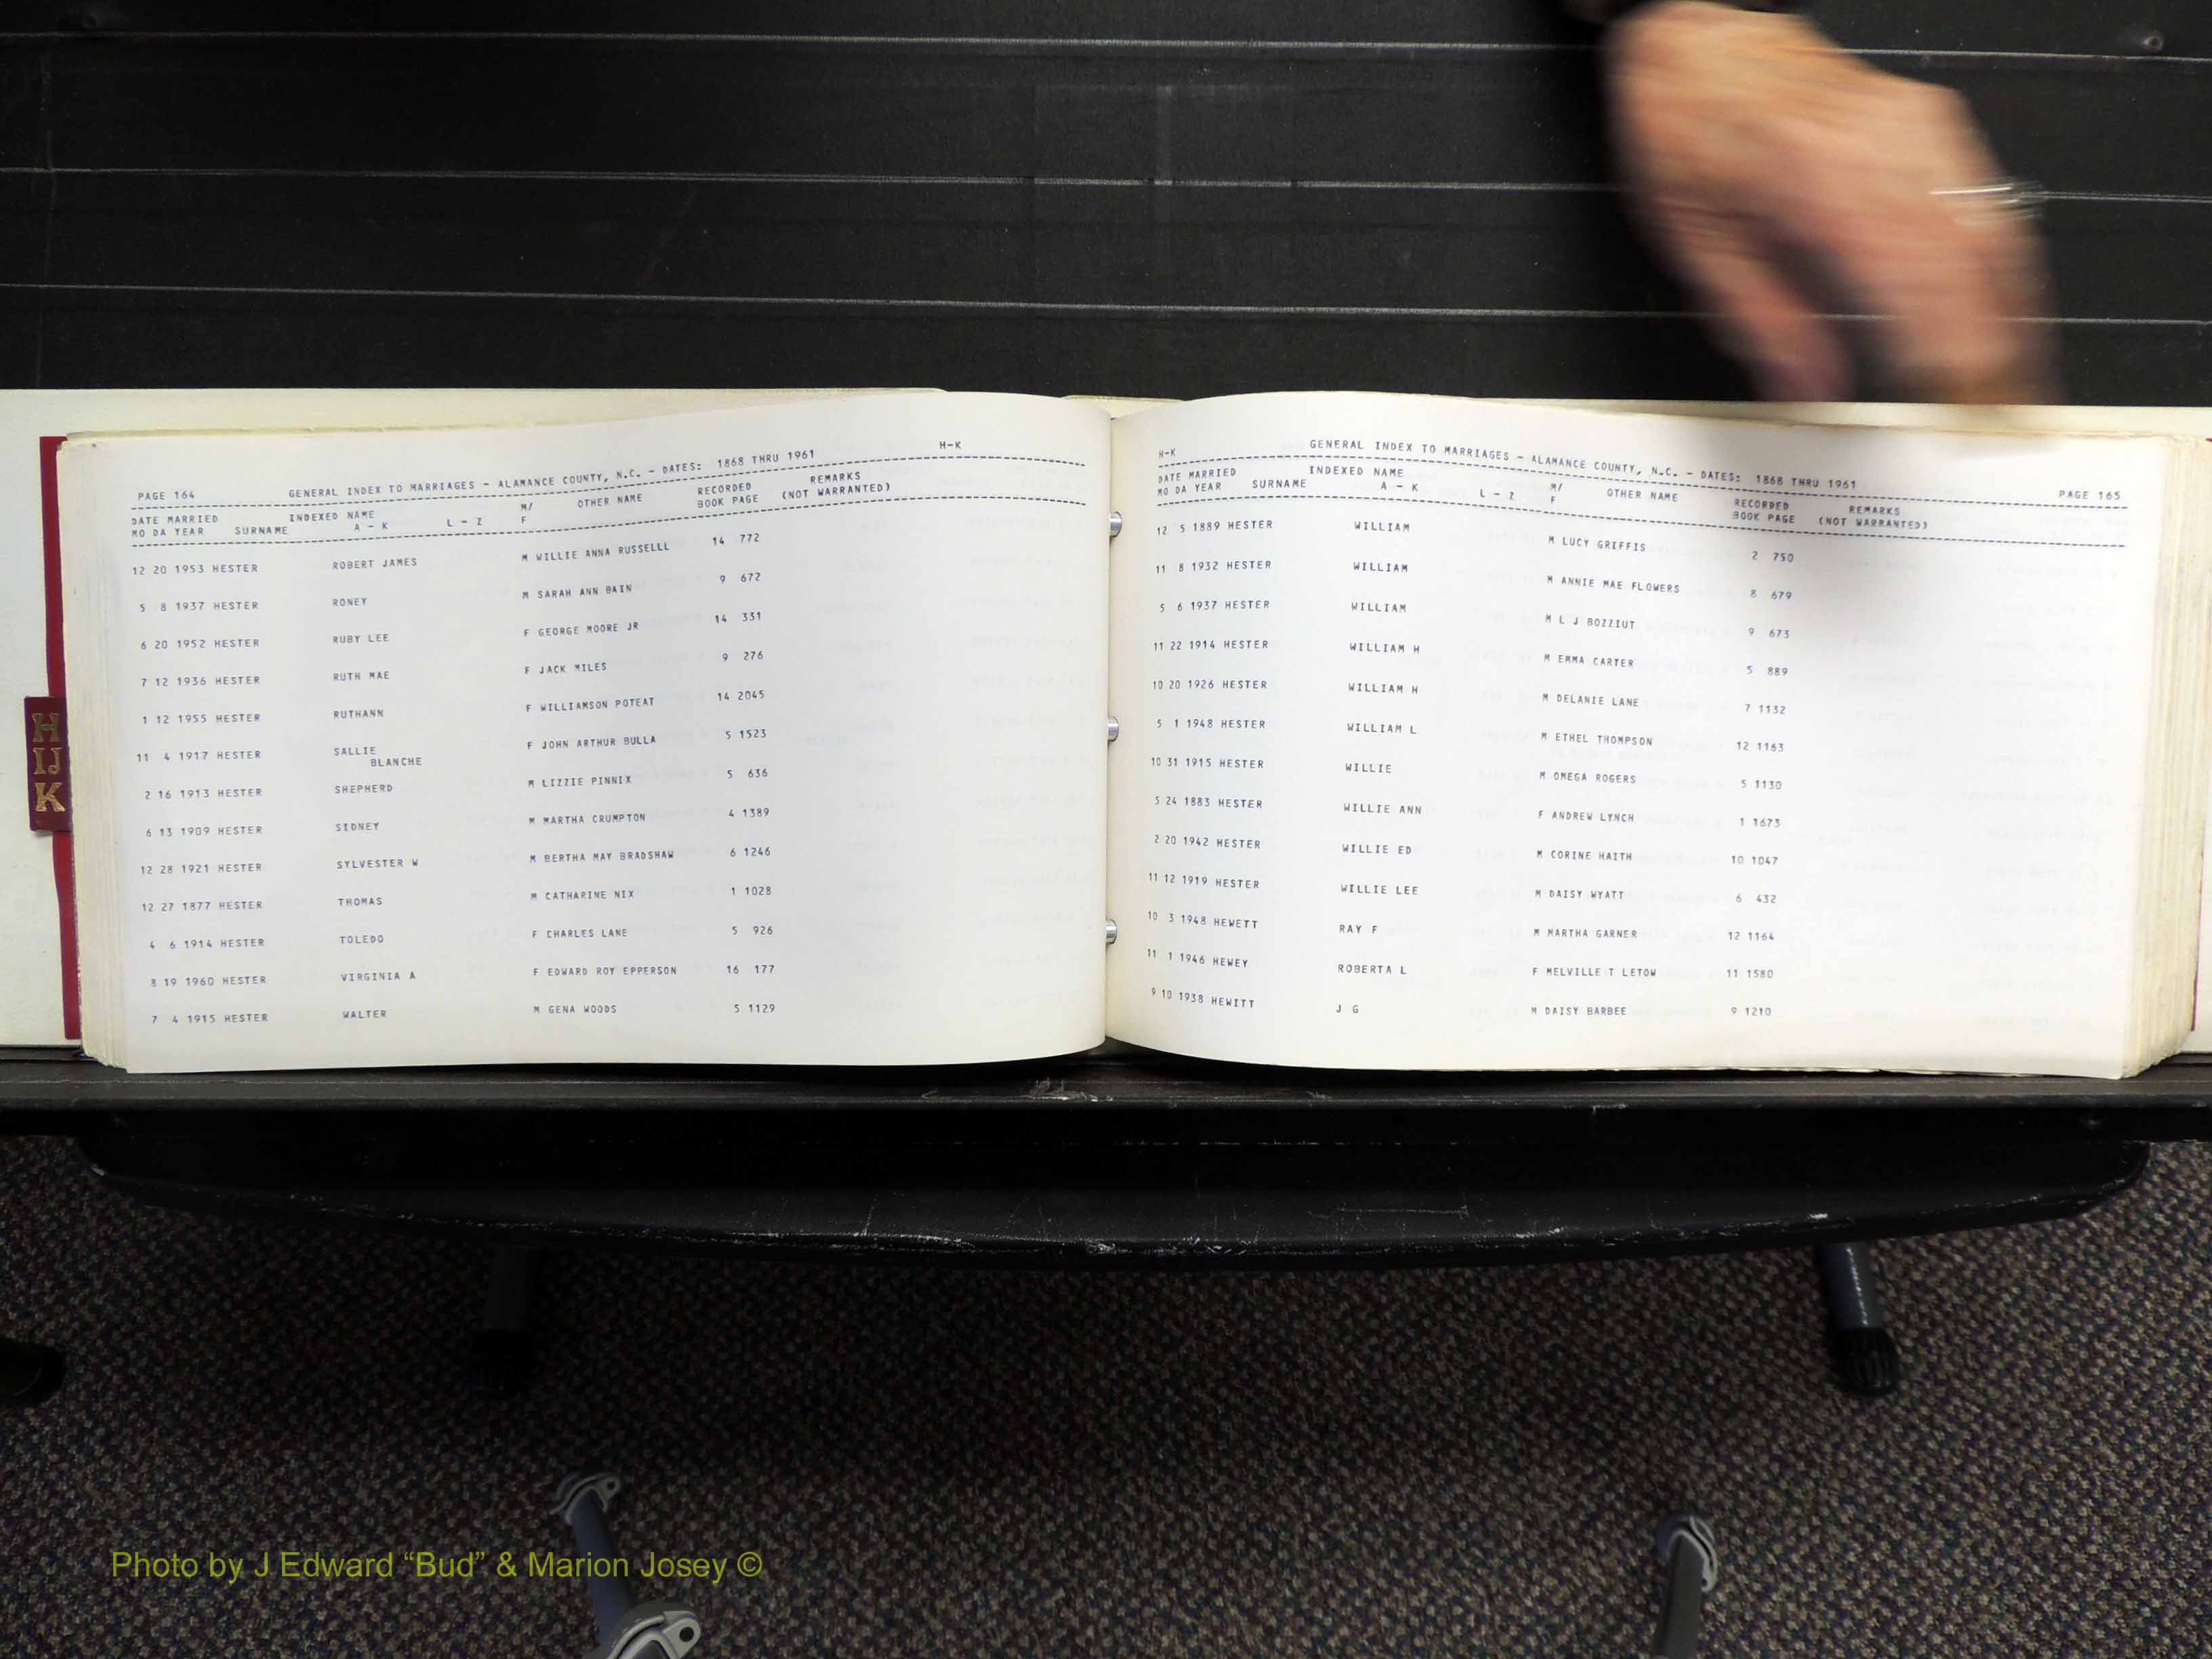 H
IJ
K
PAGE 164 GENERAL INDEX TO MARRIAGES - ALAMANCE COUNTY, N.C. - DATES: 1868 THRU 1961 H-K
DATE MARRIED INDEXED NAME M/ OTHER NAME RECORDED REMARKS
MO DA YEAR SURNAME A - K L - Z F BOOK PAGE (NOT WARRANTED)
12 20 1953 HESTER ROBERT JAMES M WILLIE ANNA RUSSELLL 14 772
5 8 1937 HESTER RONEY M SARAH ANN BAIN 9 672
6 20 1952 HESTER RUBY LEE F GEORGE MOORE JR 14 331
7 12 1936 HESTER RUTH MAE F JACK MILES 9 276
1 12 1955 HESTER RUTHANN F WILLIAMSON POTEAT 14 2045
11 4 1917 HESTER SALLIE F JOHN ARTHUR BULLA 5 1523
BLANCHE
2 16 1913 HESTER SHEPHERD M LIZZIE PINNIX 5 636
6 13 1909 HESTER SIDNEY M MARTHA CRUMPTON 4 1389
12 28 1921 HESTER SYLVESTER W M BERTHA MAY BRADSHAW 6 1246
12 27 1877 HESTER THOMAS M CATHARINE NIX 1 1028
4 6 1914 HESTER TOLEDO F CHARLES LANE 5 926
8 19 1960 HESTER VIRGINIA A F EDWARD ROY EPPERSON 16 177
7 4 1915 HESTER WALTER M GENA WOODS 5 1129
H-K GENERAL INDEX TO MARRIAGES - ALAMANCE COUNTY, N.C. - DATES: 1868 THRU 1961 PAGE 165
DATE MARRIED INDEXED NAME M/ OTHER NAME RECORDED REMARKS
MO DA YEAR SURNAME A - K L - Z F BOOK PAGE (NOT WARRANTED)
12 5 1889 HESTER WILLIAM M LUCY GRIFFIS 2 750
11 8 1932 HESTER WILLIAM M ANNIE MAE FLOWERS 8 679
5 6 1937 HESTER WILLIAM M L J BOZZIUT 9 673
11 22 1914 HESTER WILLIAM H M EMMA CARTER 5 889
10 20 1926 HESTER WILLIAM H M DELANIE LANE 7 1132
5 1 1948 HESTER WILLIAM L M ETHEL THOMPSON 12 1163
10 31 1915 HESTER WILLIE M OMEGA ROGERS 5 1130
5 24 1883 HESTER WILLIE ANN F ANDREW LYNCH 1 1673
2 20 1942 HESTER WILLIE ED M CORINE HAITH 10 1047
11 12 1919 HESTER WILLIE LEE M DAISY WYATT 6 432
10 3 1948 HEWETT RAY F M MARTHA GARNER 12 1164
11 1 1946 HEWEY ROBERTA L F MELVILLE T LETOW 11 1580
9 10 1938 HEWITT J G M DAISY BARBEE 9 1210
Photo by J Edward “Bud” & Marion Josey ©